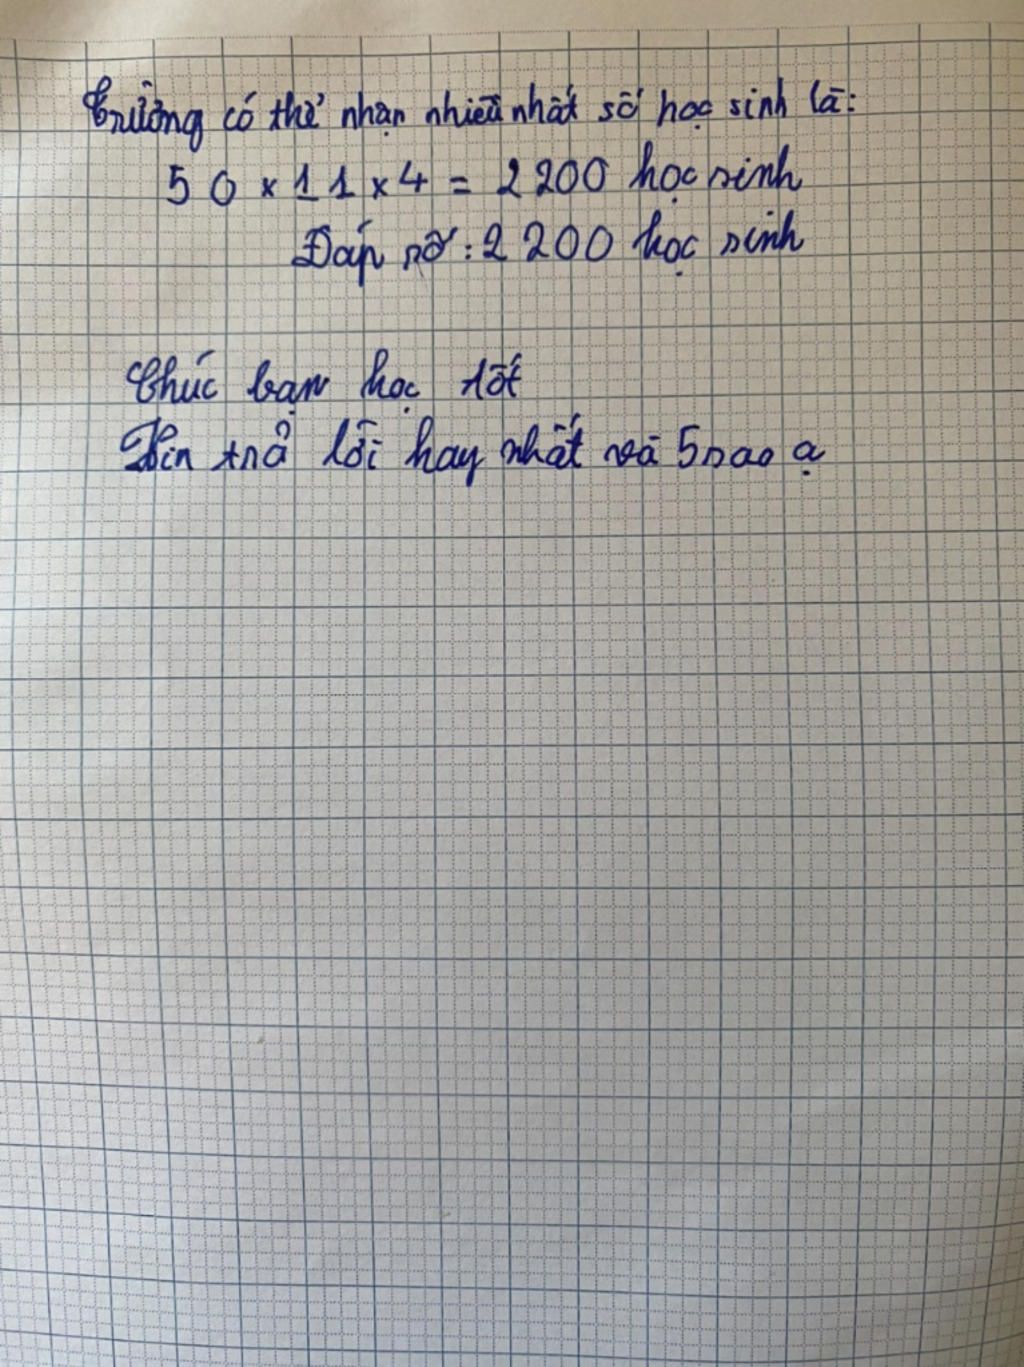 Trường có thể nhận nhiều nhất số học sinh là:
50 x 11 x 4 = 2200 học sinh
Đáp số: 2200 học sinh
Chúc bạn học tốt
Xin trả lời hay nhất và 5 sao ạ